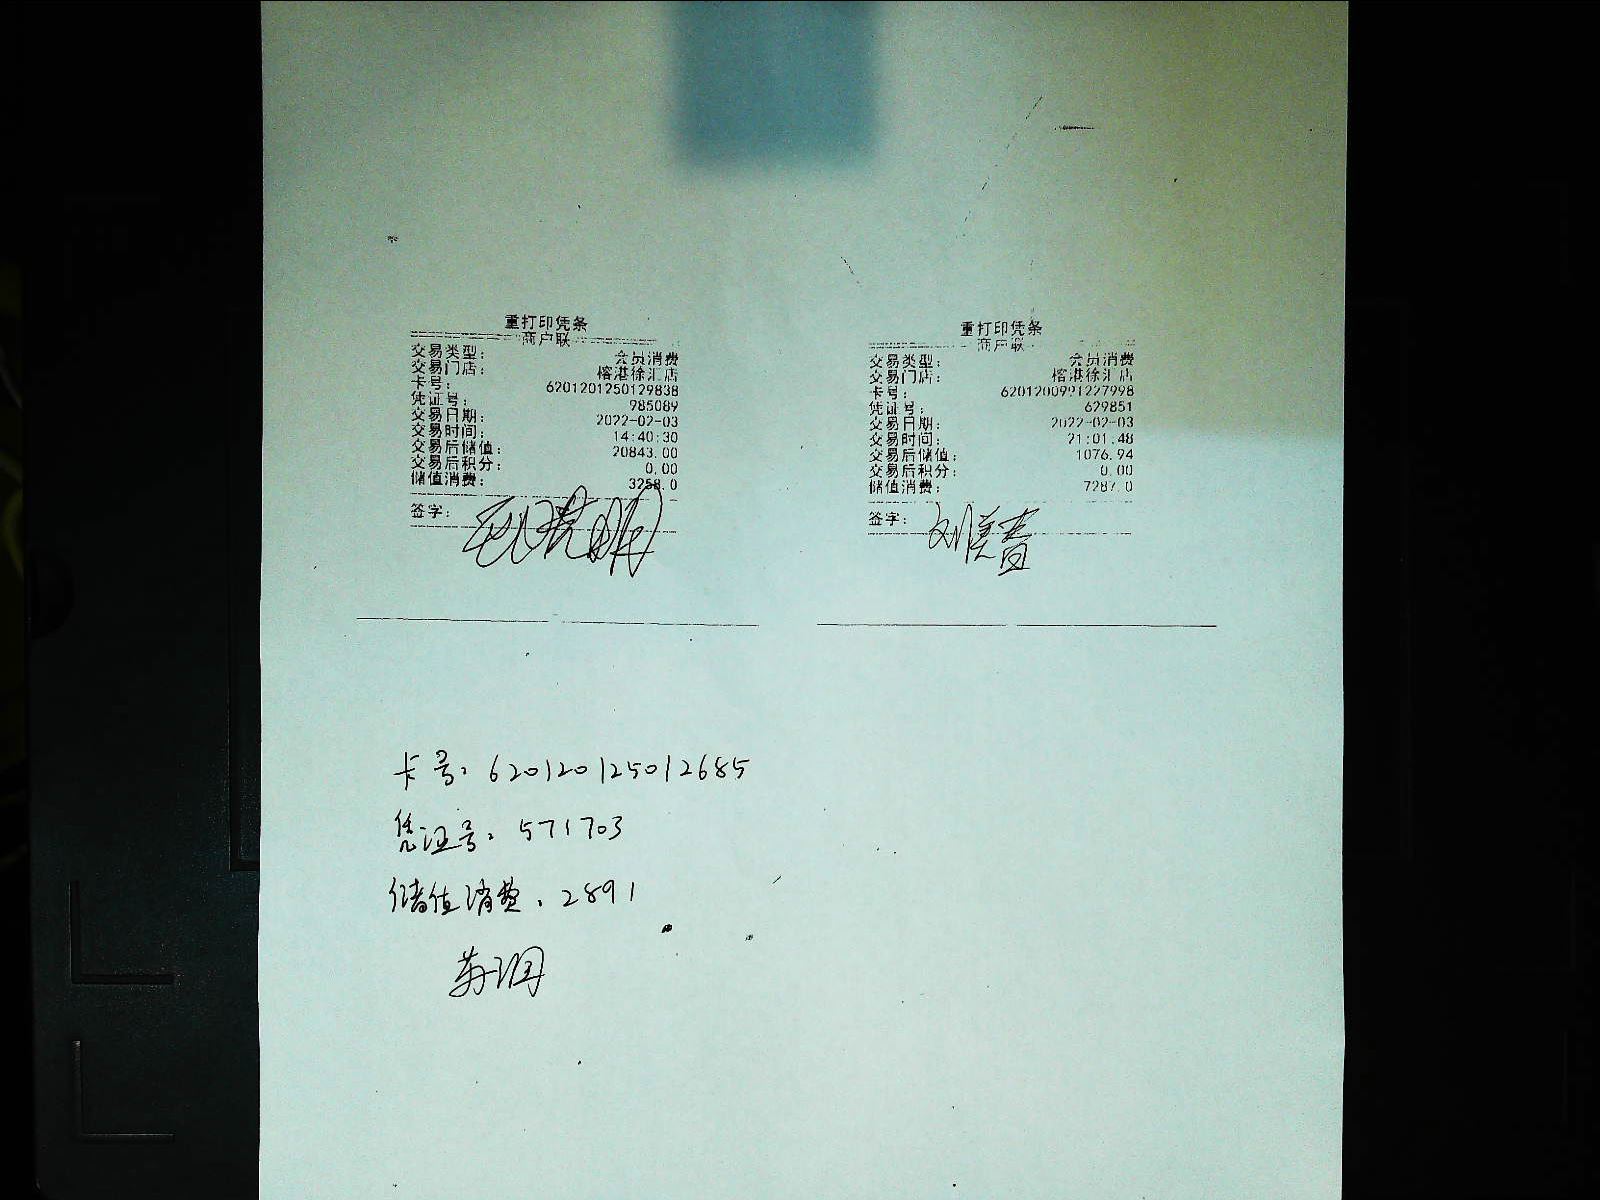 重打印凭条
商户联
交易类型: 会员消费
交易门店: 榕港徐汇店
卡号: 6201201250129838
凭证号: 985089
交易日期: 2022-02-03
交易时间: 14:40:30
交易后储值: 20843.00
交易后积分: 0.00
储值消费: 3258.0
签字:
重打印凭条
商户联
交易类型: 会员消费
交易门店: 榕港徐汇店
卡号: 6201200991227998
凭证号: 629851
交易日期: 2022-02-03
交易时间: 21:01:48
交易后储值: 1076.94
交易后积分: 0.00
储值消费: 7287.0
签字:
卡号: 620120125012685
凭证号: 571703
储值消费: 2891